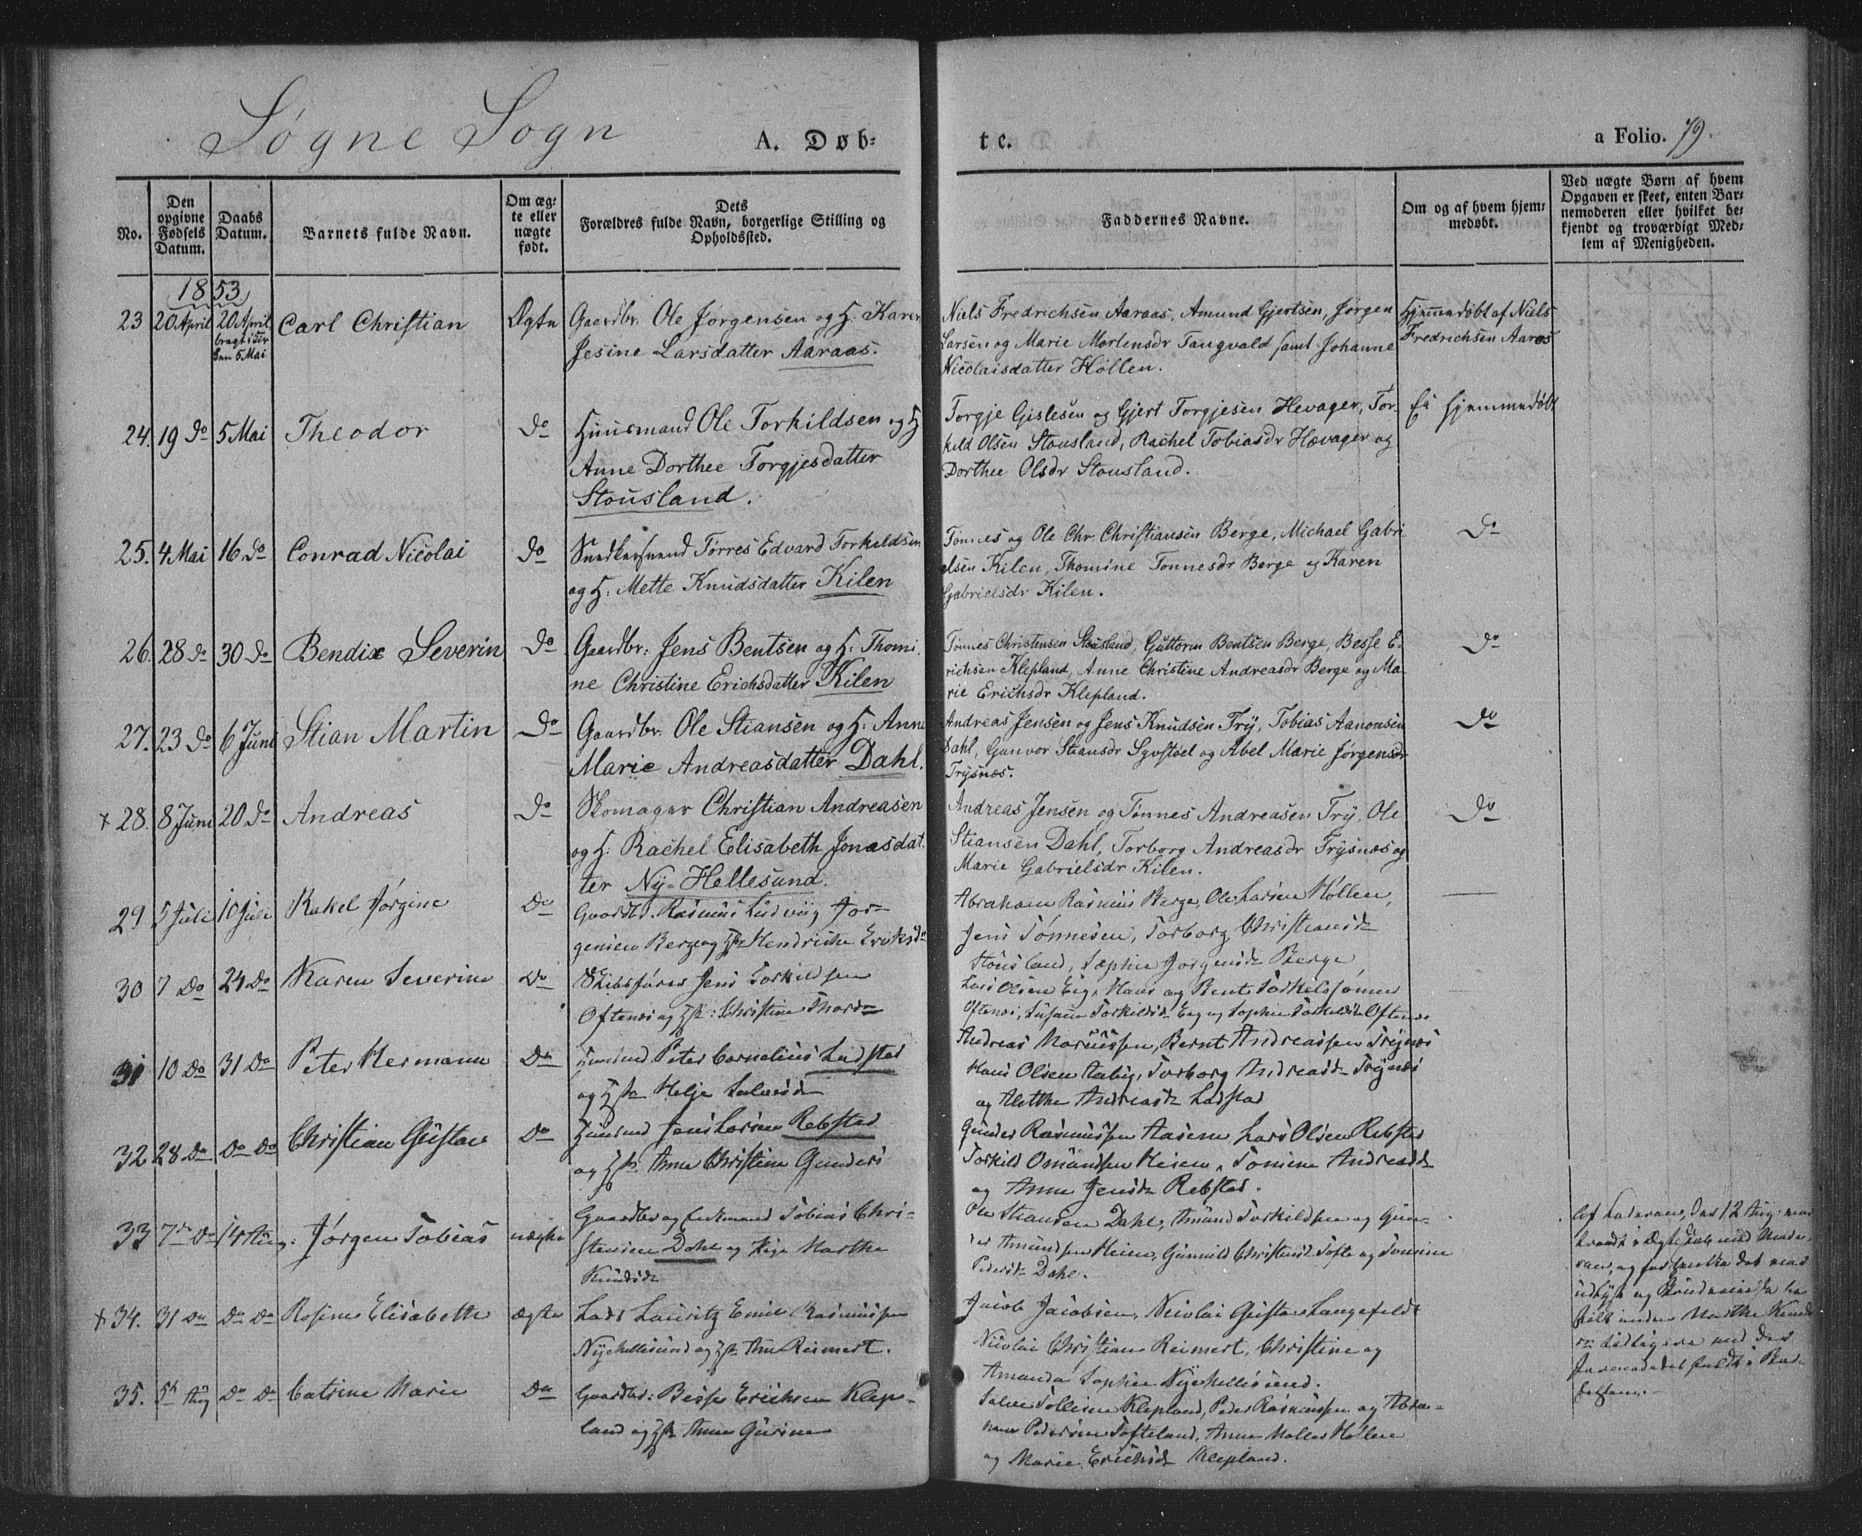 Søgne Sogn
A. Døb-
te.
a Folio. 79.
No.
Den opgivne Fødsels Datum.
Daabs Datum.
Barnets fulde Navn.
Om ægte eller uægte født.
Dets Forældres fulde Navn, borgerlige Stilling og Opholdssted.
Faddernes Navne.
Om og af hvem hjemmedøbt.
Ved uægte Børn af hvem Opgaven er skeet, enten Barnemoderen eller hvilket bekjendt og troværdigt Medlem af Menigheden.
1853
23 20 April 20 April bragt i Kirken 5 Mai Carl Christian Ægte Gaardbr. Ole Jørgensen og H: Karen
Jesine Larsdatter Aaraas.
Niels Fredrichsen Aaraas, Amund Gjertsen, Jørgen
Larsen og Marie Mortensdr Tangvald samt Johanne
Nicolaisdatter Høllen.
Hjemmedøbt af Niels
Fredrichsen Aaros
24. 19 Do 5 Mai Theodor Do Huusmand Ole Torkildsen og H
Anne Dorthee Torgjesdatter
Stousland.
Torgje Gislesen og Gjert Torgjesen Hevager, Tor-
kild Olsen Stousland, Rachel Tobiasdr Hævager og
Dorthee Olsdr Stousland.
Ei hjemmedøbt
25. 4 Mai 16 Do Conrad Nicolai Do Snedkersvend Tørres Edvard Torkildsen
og H: Mette Knudsdatter Kilen
Tønnes og Ole Chr. Christiansen Berge, Michael Gabri
elsen Kilen, Thomine Tønnesdr Berge og Karen
Gabrielsdr Kilen.
Do
26. 28 Do 30 Do Bendix Severin Do Gaardbr: Jens Bentsen og H: Thomi
ne Christine Erichsdatter Kilen
Tønnes Christensen Stousland, Guttorm Bentsen Berge, Besse E-
richsen Klepland, Anne Christine Andreasdr Berge og Ma
rie Erichsdr Klepland.
Do
27. 23 Do 6 Juni Stian Martin Do Gaardbr. Ole Stiansen og H: Anne
Marie Andreasdatter Dahl.
Andreas Jensen og Jens Knudsen Try, Tobias Aanonsen
Dahl, Gunvor Stiansdr Sgvstøel og Abel Marie Jørgensdr
Trysnæs.
Do
x 28. 8 Juni 20 Do Andreas Do Skomager Christian Andreasen
og H: Rachel Elisabeth Jonasdat
ter Ny-Hellesund.
Andreas Jensen og Tønnes Andreasen Try, Ole
Stiansen Dahl, Torborg Andreasdr Trysnæs og
Marie Gabrielsdr Kilen.
Do
29 5 Juli 10 Juli Rakel Jørgine Do Gaardbr. Rasmus Ludvig Jør-
gensen Berge og Hst Hendrikke Eriksd
Abraham Rasmus Berge, Ole Larsen Høllen,
Jens Tønnesen, Torborg Christiansd
Stousland, Sophie Jørgensd Berge
30 7 Do 24 Do Karen Severine Do Skibsfører Jens Torkildsen
Oftenæs og Hst: Christine Thord
Lars Olsen Eig, Hans og Bent Torkilssønner
Oftenæs, Susane Torkildsd Eeg og Sophie Torkildsd Oftenæs
31 10 Do 31 Do Peter Hermann Do Huusmd Peter Cornelius Ludstad
og Hst Helje Salvesd
Andreas Marcussen, Bernt Andreassen Trysnæs
Hans Olsen Aaby, Torborg Andreasd Trysnæs
og Andreasd Ludstad
32 28 Do Do Do Christian Gustav Do Huusmd Jens Larsen Rebstad
og Hst Anne Christine Gunders
Gunder Rasmussen Aasen, Lars Olsen Rebstad
Torkild Omundsen Heien, Tomine Andreasd
og Anne Jensd Rebstad.
33 7 Do 14 Aug. Jørgen Tobias uægte Gaardbr og Enkemand Tobias Chri-
stensen Dahl og Pige Marthe
Knudsd
Ole Stiansen Dahl, Amund Torkildsen og Gun-
der Amundsen Heien, Gunvild Christensd Tofte og Tomine
Pedersd Dahl.
Af Faderen, den 12 Aug.
x 34. 31 Do Do Do Rosine Elisabeth ægte Lods Lauritz Emil Rasmussen
Nyehellesund og Hst Ane Reimert.
Jacob Jacobsen, Nicolai Gustav Langefeldt
Nicolai Christian Reimert, Christine og
Amanda Sophie Nyehellesund.
35. 5 Aug Do Do Catrine Marie Do Gaardbr: Besse Ericksen Klep-
land og Hst Anne Gurine
Salve Tollisen Klepland, Peder Rasmussen og Abra-
ham Pedersen Tofteland, Anne Malles Høllen
og Marie Erichsd Klepland.